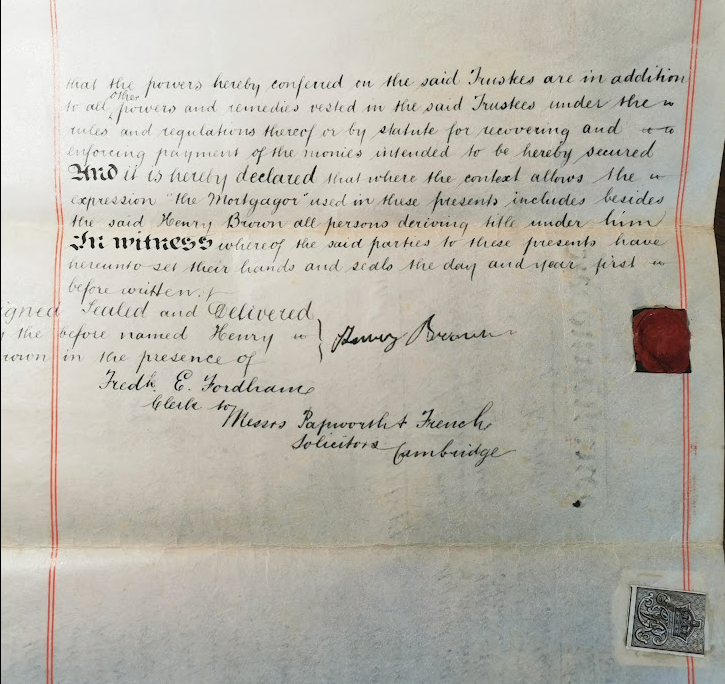 that the powers hereby conferred on the said Trustees are in addition
to all other powers and remedies vested in the said Trustees under the
rules and regulations thereof or by statute for recovering and
enforcing payment of the monies intended to be hereby secured
And it is hereby declared that where the context allows the
expression "the Mortgagor" used in these presents includes besides
the said Henry Brown all persons deriving title under him
In witness whereof the said parties to these presents have
hereunto set their hands and seals the day and year first
before written.
igned Sealed and Delivered
the before named Henry
rown in the presence of
Henry Brown
Fredk E. Fordham
Clerk to
Messrs Papworth & French
Solicitors Cambridge